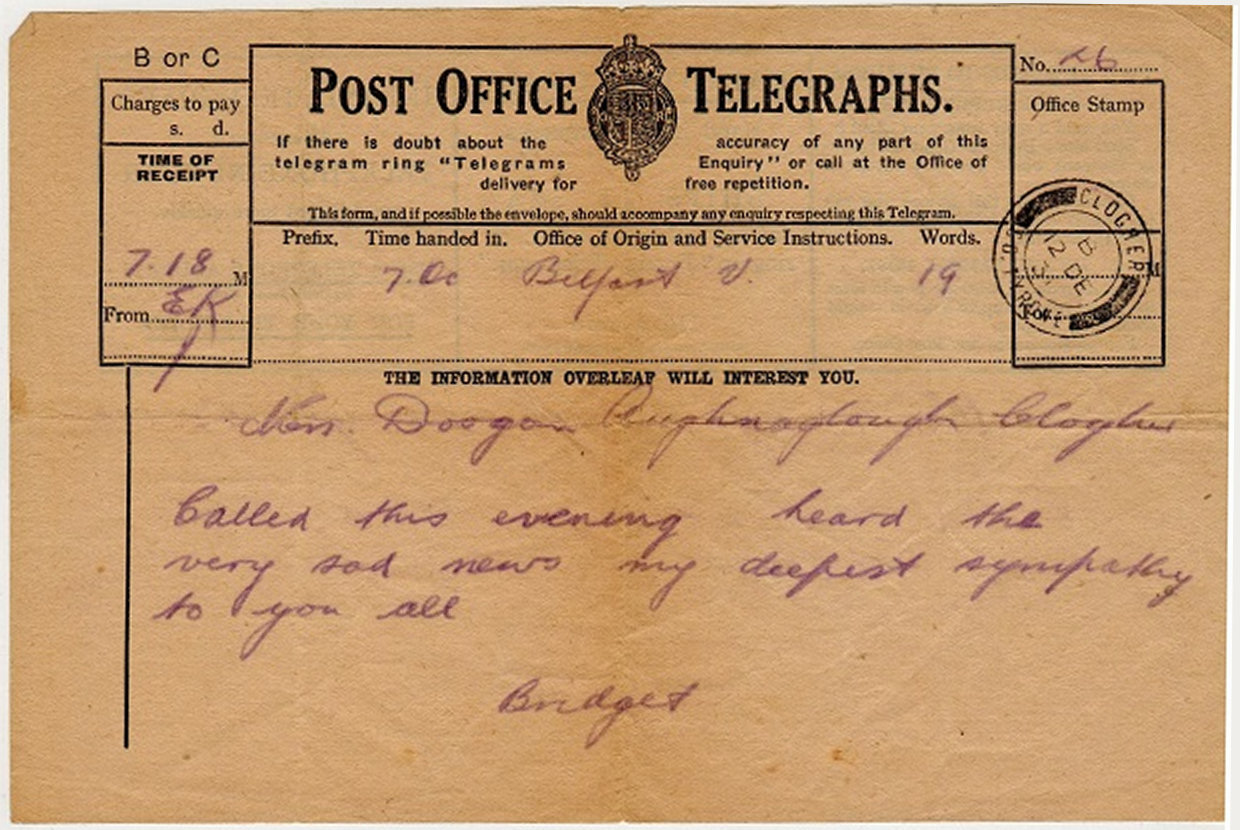 B or C
No. 26
Charges to pay
s. d.
POST OFFICE TELEGRAPHS.
Office Stamp
If there is doubt about the accuracy of any part of this
telegram ring "Telegrams Enquiry" or call at the Office of
delivery for free repetition.
This form, and if possible the envelope, should accompany any enquiry respecting this Telegram.
TIME OF
RECEIPT
7.18 M
From EK
Prefix. Time handed in. Office of Origin and Service Instructions. Words.
7.00 Belfast V. 19
M
CLOGHER
8 DE
CO. TYRONE
THE INFORMATION OVERLEAF WILL INTEREST YOU.
Mrs. Doogan Aughnaglough Clogher
Called this evening heard the
very sad news my deepest sympathy
to you all
Bridget